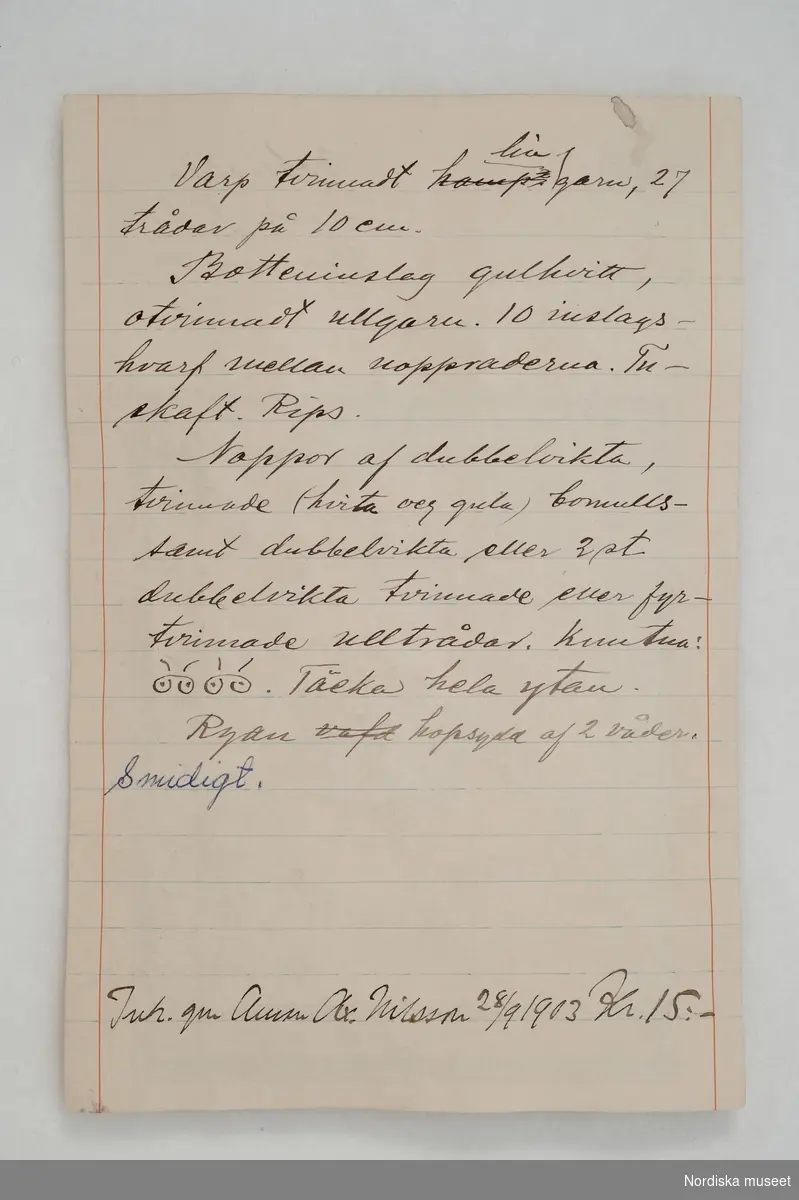 Varp tvinnadt hamp lin garn, 27
trådar på 10 cm.
Botteninslag gulhvitt,
otvinnadt ullgarn. 10 inslags-
hvarf mellan noppraderna. Tu-
skaft. Rips.
Noppor af dubbelvikta,
tvinnade (hvita och gula) bomulls-
samt dubbelvikta eller 2 st
dubbelvikta tvinnade eller fyr-
tvinnade ulltrådar. Knutna:
. Täcka hela ytan.
Ryan väfd hopsydd af 2 våder.
Smidigt.
Ink. gm Ax. Nilsson 28/9 1903 Kr. 15:-
Nordiska museet